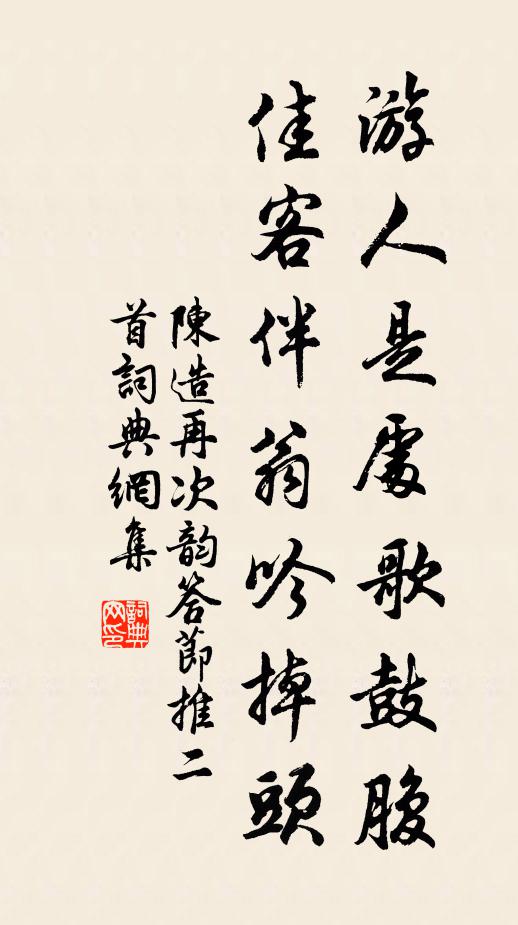 游人是處歌鼓腹
佳客伴翁吟掉頭
陳造再次韵答節推二
首詞典網集
詞典網印